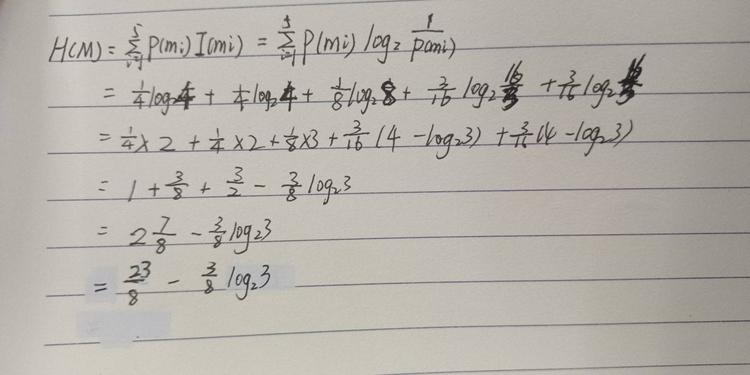 H(M) = \sum_{i=1}^{5} P(mi) I(mi) = \sum_{i=1}^{5} P(mi) log₂ \frac{1}{P(mi)}
= \frac{1}{4} log₂4 + \frac{1}{4} log₂4 + \frac{1}{8} log₂8 + \frac{3}{16} log₂ \frac{16}{3} + \frac{3}{16} log₂ \frac{16}{3}
= \frac{1}{4} × 2 + \frac{1}{4} × 2 + \frac{1}{8} × 3 + \frac{3}{16} (4 - log₂3) + \frac{3}{16} (4 - log₂3)
= 1 + \frac{3}{8} + \frac{3}{2} - \frac{3}{8} log₂3
= 2 \frac{7}{8} - \frac{3}{8} log₂3
= \frac{23}{8} - \frac{3}{8} log₂3